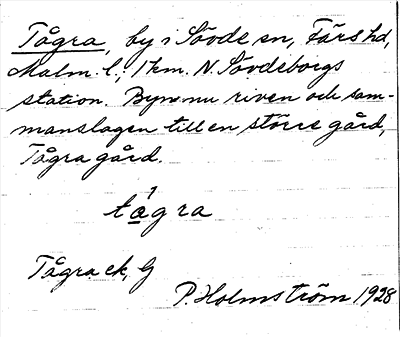 Tågra, by i Sövde sn, Färs hd,
Malm. l., 1 km. N. Sövdeborgs
station. Byn nu riven och sam-
manslagen till en större gård,
Tågra gård.
tågra
Tågra ek, G
P. Holmström 1928